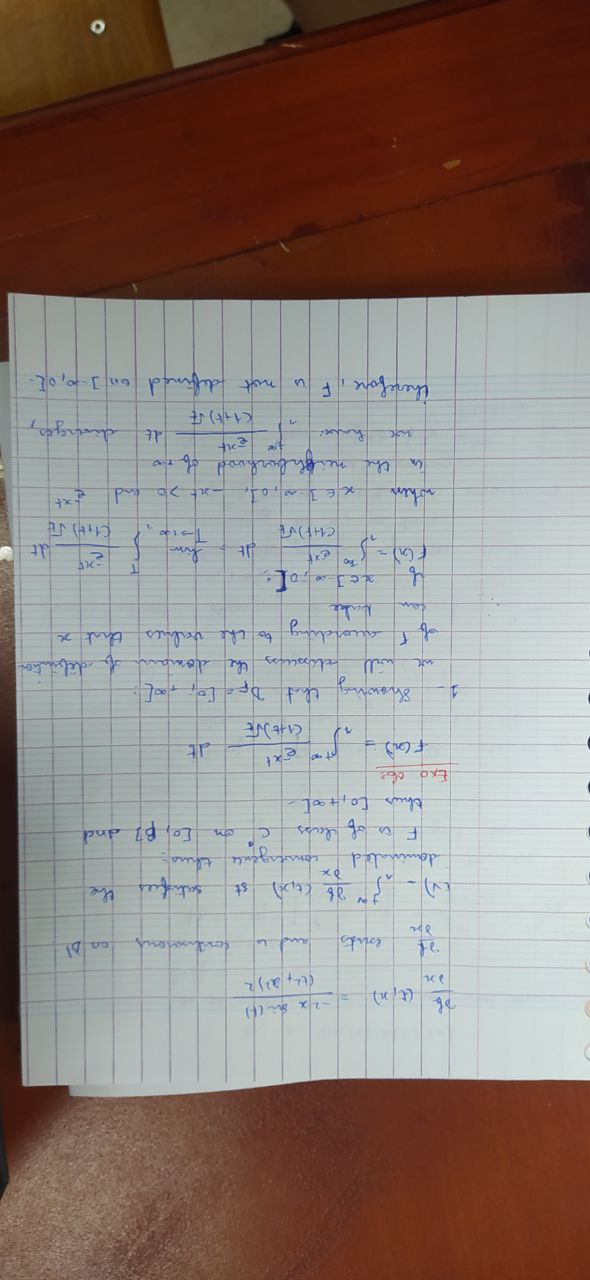 ∂f/∂x (t,x) = -2x sin(t) / (t²+x²)²
∂f/∂x exists and is continuous on D'
(v) - ∫₁^{+∞} ∂f/∂x (t,x) dt satisfies the
dominated convergence thus:
F is of class C° on [0,β] and
thus [0,+∞[ -
Exo 06:
F(x) = ∫₁^{+∞} e^{-xt} / (1+t)√t dt
1- Showing that D_F = [0,+∞[ :
we will discuss the domain of definition
of F according to the values that x
can take
if x ∈ ]-∞,0[ :
F(x) = ∫₁^{+∞} e^{-xt} / (1+t)√t dt = lim T→+∞ ∫₁^T e^{-xt} / (1+t)√t dt
when x ∈ ]-∞,0[, -xt > 0 and e^{-xt}
in the neighborhood of +∞
we have: ∫₁^{+∞} e^{-xt} / (1+t)√t dt diverges,
therefore, F is not defined on ]-∞,0[ -